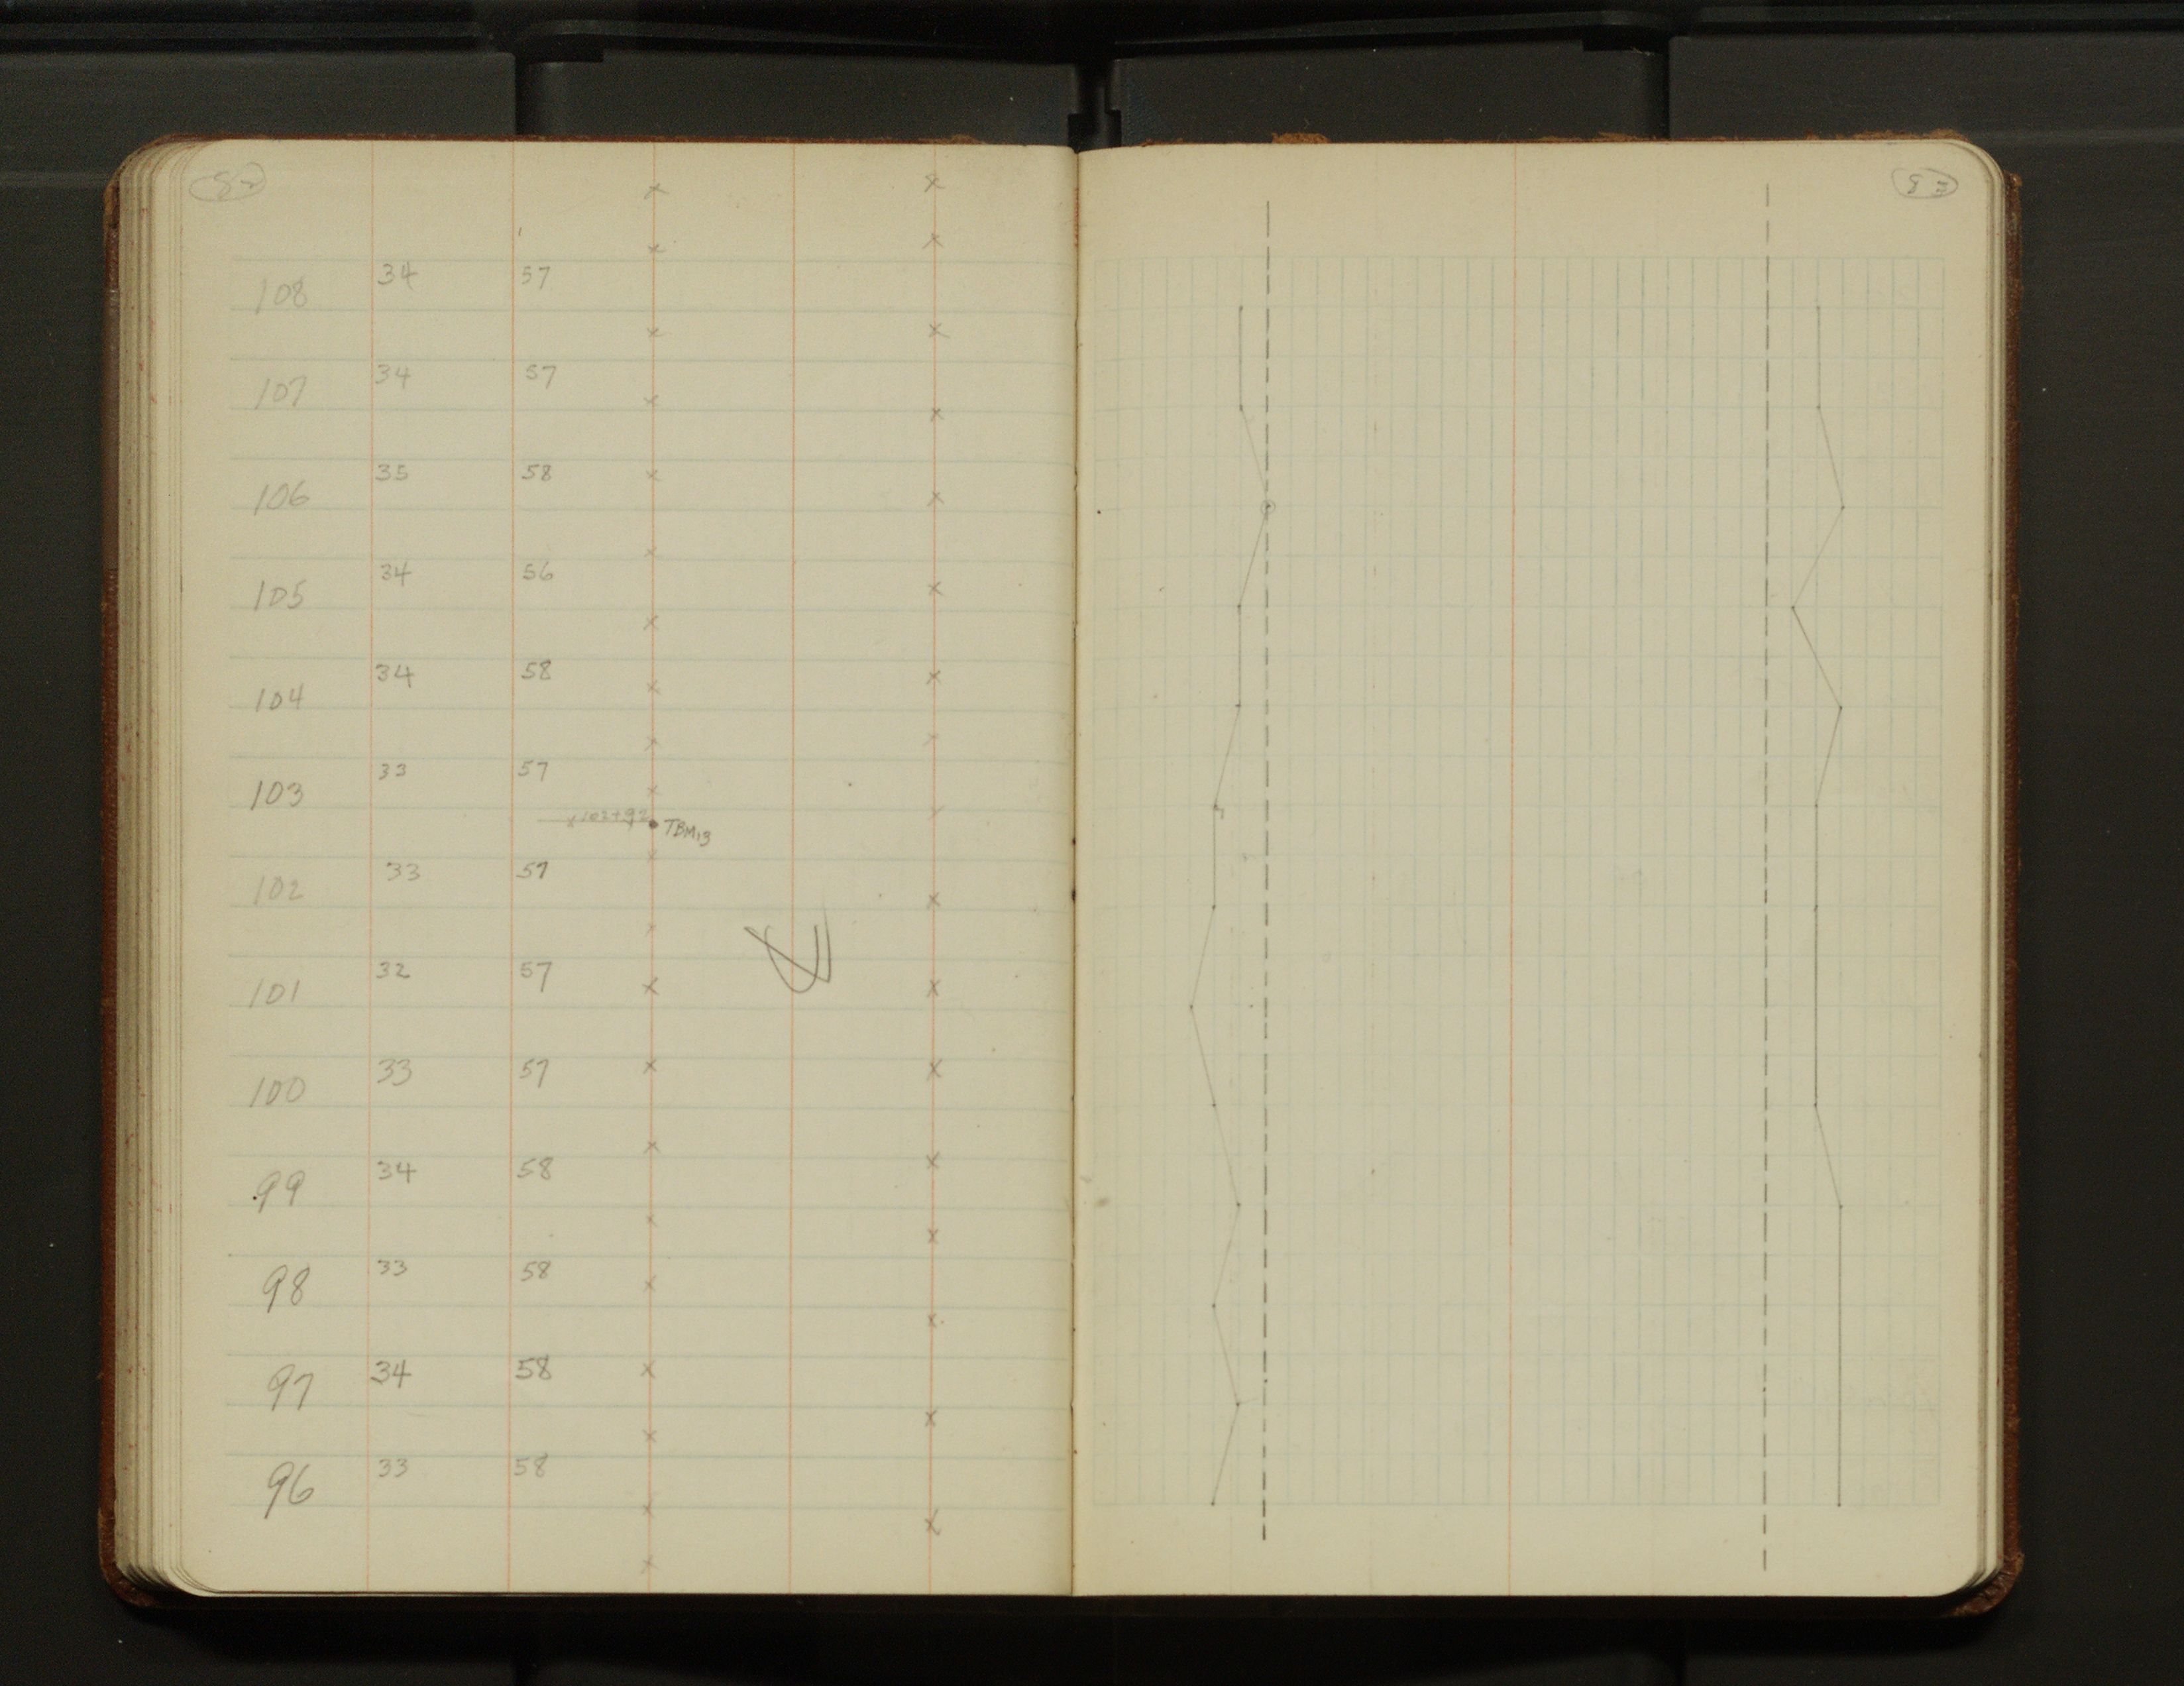 108 34 57
107 34 57
106 35 58
105 34 56
104 34 58
103 33 57
103+92 TBM13
102 33 57
101 32 57
100 33 57
99 34 58
98 33 58
97 34 58
96 33 58